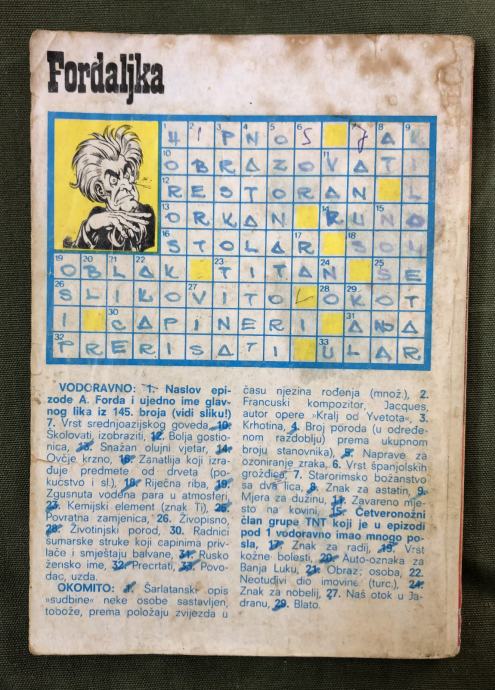 Fordaljka
1 2 3 4 5 6 7 8 9
H I P N O S J A K
10 11
O B R A Z O V A T I
12
R E S T O R A N L
13 14 15
O R K A N R U N O
16 17 18
S T O L A R S O M
19 20 21 22 23 24 25
O B L A K T I T A N S E
26 27 28 29
S L I K O V I T O O K O T
30 31
I C A P I N E R I A N A
32 33
P R E R I S A T I U L A R
VODORAVNO: 1. Naslov epi-
zode A. Forda i ujedno ime glav-
nog lika iz 145. broja (vidi sliku!)
7. Vrst srednjoazijskog goveda, 10.
Školovati, izobraziti, 12. Bolja gostio-
nica, 13. Snažan olujni vjetar, 14.
Ovčje krzno, 16. Zanatlija koji izra-
đuje predmete od drveta (po-
kućstvo i sl.), 18. Riječna riba, 19.
Zgusnuta vodena para u atmosferi,
23. Kemijski element (znak Ti), 25.
Povratna zamjenica, 26. Živopisno,
28. Životinjski porod, 30. Radnici
šumarske struke koji capinima priv-
lače i smještaju balvane, 31. Rusko
žensko ime, 32. Precrtati, 33. Povo-
dac, uzda.
OKOMITO: 1. Šarlatanski opis
»sudbine« neke osobe sastavljen,
tobože, prema položaju zvijezda u
času njezina rođenja (množ.), 2.
Francuski kompozitor, Jacques,
autor opere »Kralj od Yvetota«, 3.
Krhotina, 4. Broj poroda (u određe-
nom razdoblju) prema ukupnom
broju stanovnika), 5. Naprave za
ozoniranje zraka, 6. Vrst španjolskih
grozdića, 7. Starorimsko božanstvo
sa dva lica, 8. Znak za astatin, 9.
Mjera za dužinu, 11. Zavareno mje-
sto na kovini, 15. Četveronožni
član grupe TNT koji je u epizodi
pod 1 vodoravno imao mnogo po-
sla, 17. Znak za radij, 18. Vrst
kožne bolesti, 20. Auto-oznaka za
Banja Luku, 21. Obraz; osoba, 22.
Neotuđivi dio imovine (turc.), 24.
Znak za nobelij, 27. Naš otok u Ja-
dranu, 29. Blato.